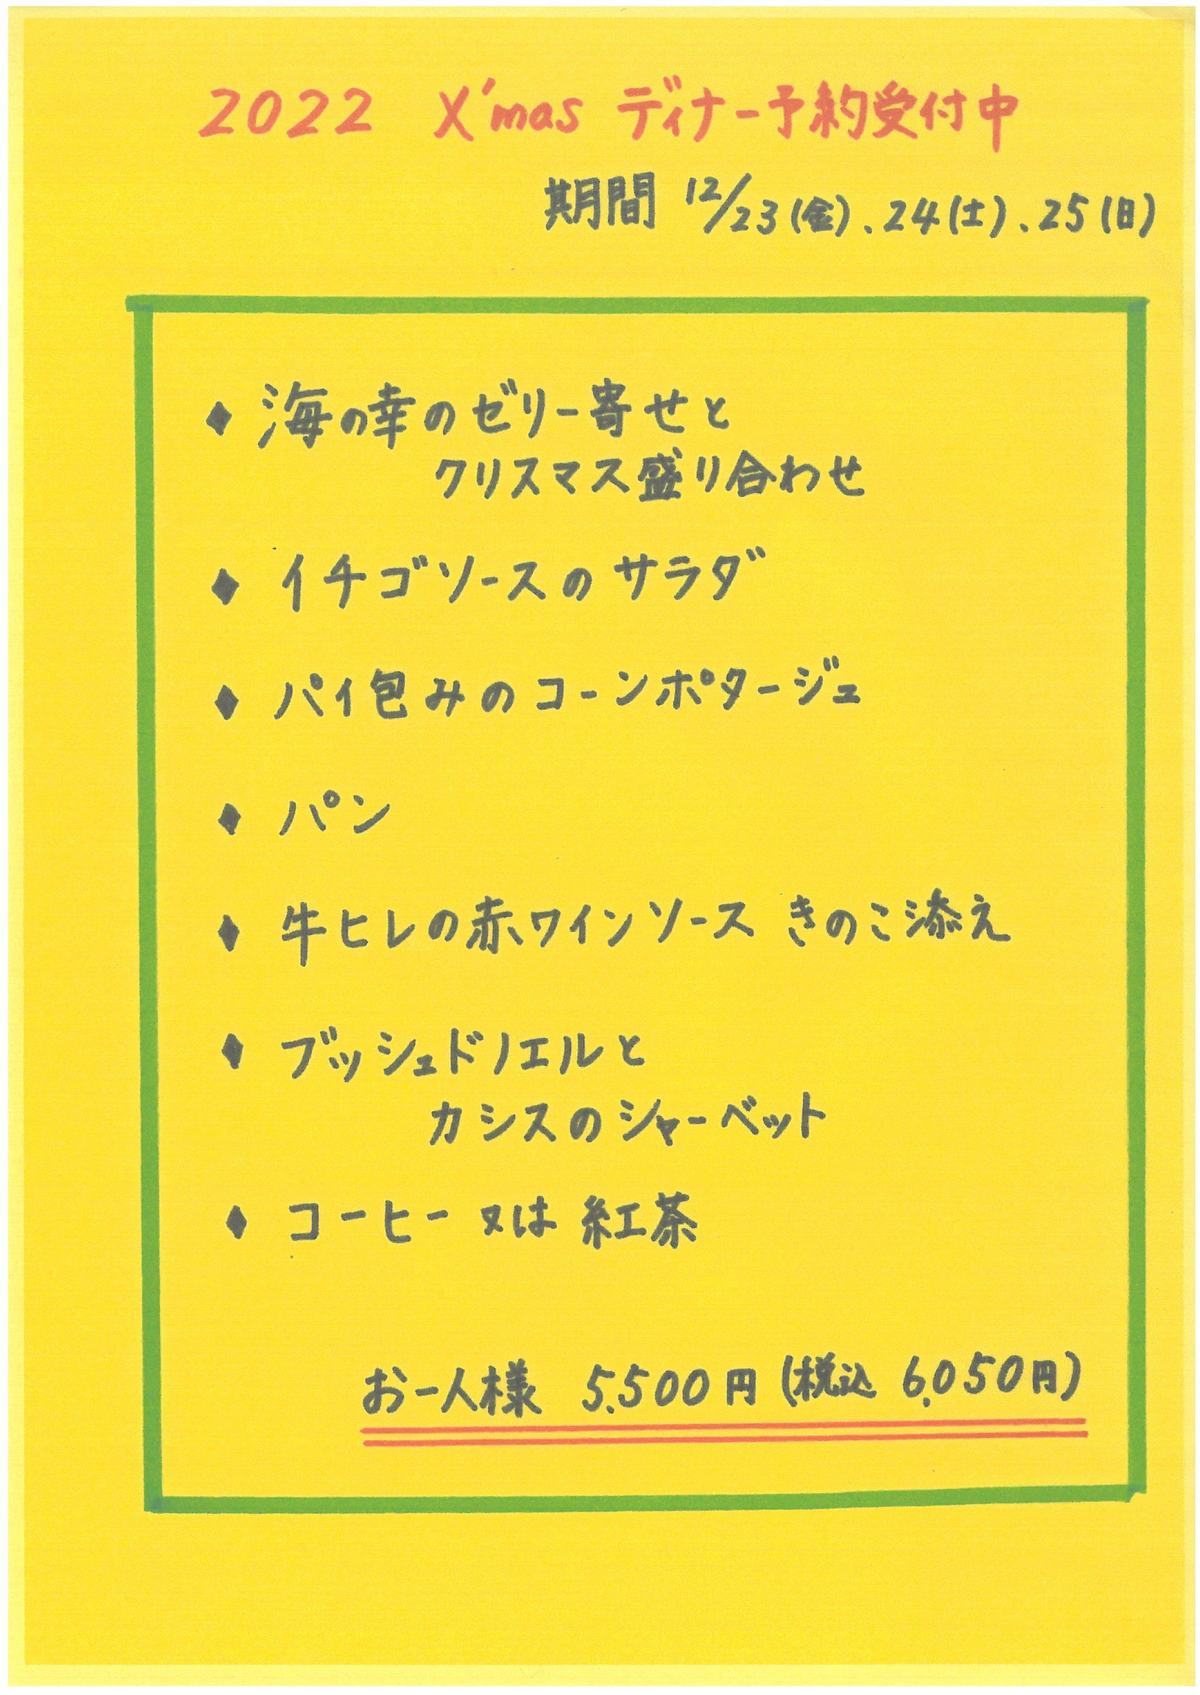 2022 X'mas ディナー予約受付中
期間 12/23(金)、24(土)、25(日)
◆ 海の幸のゼリー寄せと
クリスマス盛り合わせ
◆ イチゴソースのサラダ
◆ パイ包みのコーンポタージュ
◆ パン
◆ 牛ヒレの赤ワインソース きのこ添え
◆ ブッシュドノエルと
カシスのシャーベット
◆ コーヒー又は 紅茶
お一人様 5,500円 (税込 6,050円)